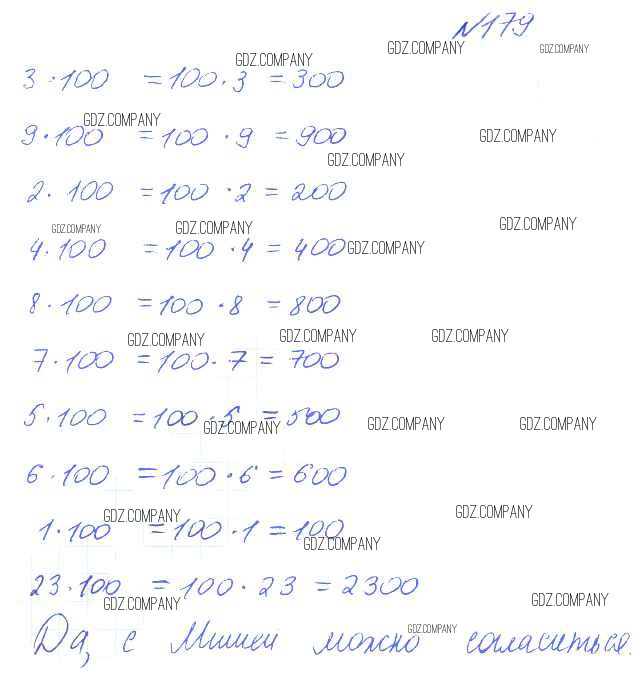 №179
GDZ.COMPANY GDZ.COMPANY GDZ.COMPANY
3 · 100 = 100 · 3 = 300
GDZ.COMPANY GDZ.COMPANY
9 · 100 = 100 · 9 = 900
GDZ.COMPANY
2 · 100 = 100 · 2 = 200
GDZ.COMPANY GDZ.COMPANY GDZ.COMPANY
4 · 100 = 100 · 4 = 400 GDZ.COMPANY
8 · 100 = 100 · 8 = 800
GDZ.COMPANY GDZ.COMPANY GDZ.COMPANY
7 · 100 = 100 · 7 = 700
5 · 100 = 100 · 5 = 500
GDZ.COMPANY GDZ.COMPANY GDZ.COMPANY
6 · 100 = 100 · 6 = 600
GDZ.COMPANY GDZ.COMPANY
1 · 100 = 100 · 1 = 100
GDZ.COMPANY
23 · 100 = 100 · 23 = 2300
GDZ.COMPANY GDZ.COMPANY
Да, с Мишей можно согласиться.
GDZ.COMPANY